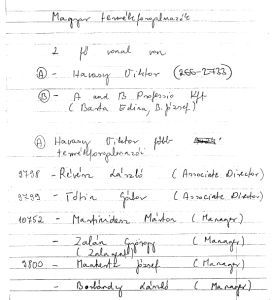 Magyar termékforgalmazók
2 fő vonal van
(A) - Havasy Viktor (266-2733)
(B) - A and B Professio Kft
(Barta Edina, B. József)
(A) Havasy Viktor főbb
termékforgalmazói
9798 - Révész László (Associate Director)
9799 - Tótin Gábor (Associate Director)
10752 - Martinidesz Márton (Manager)
- Zalán György (Manager)
9800 - József (Manager)
- László (Manager)